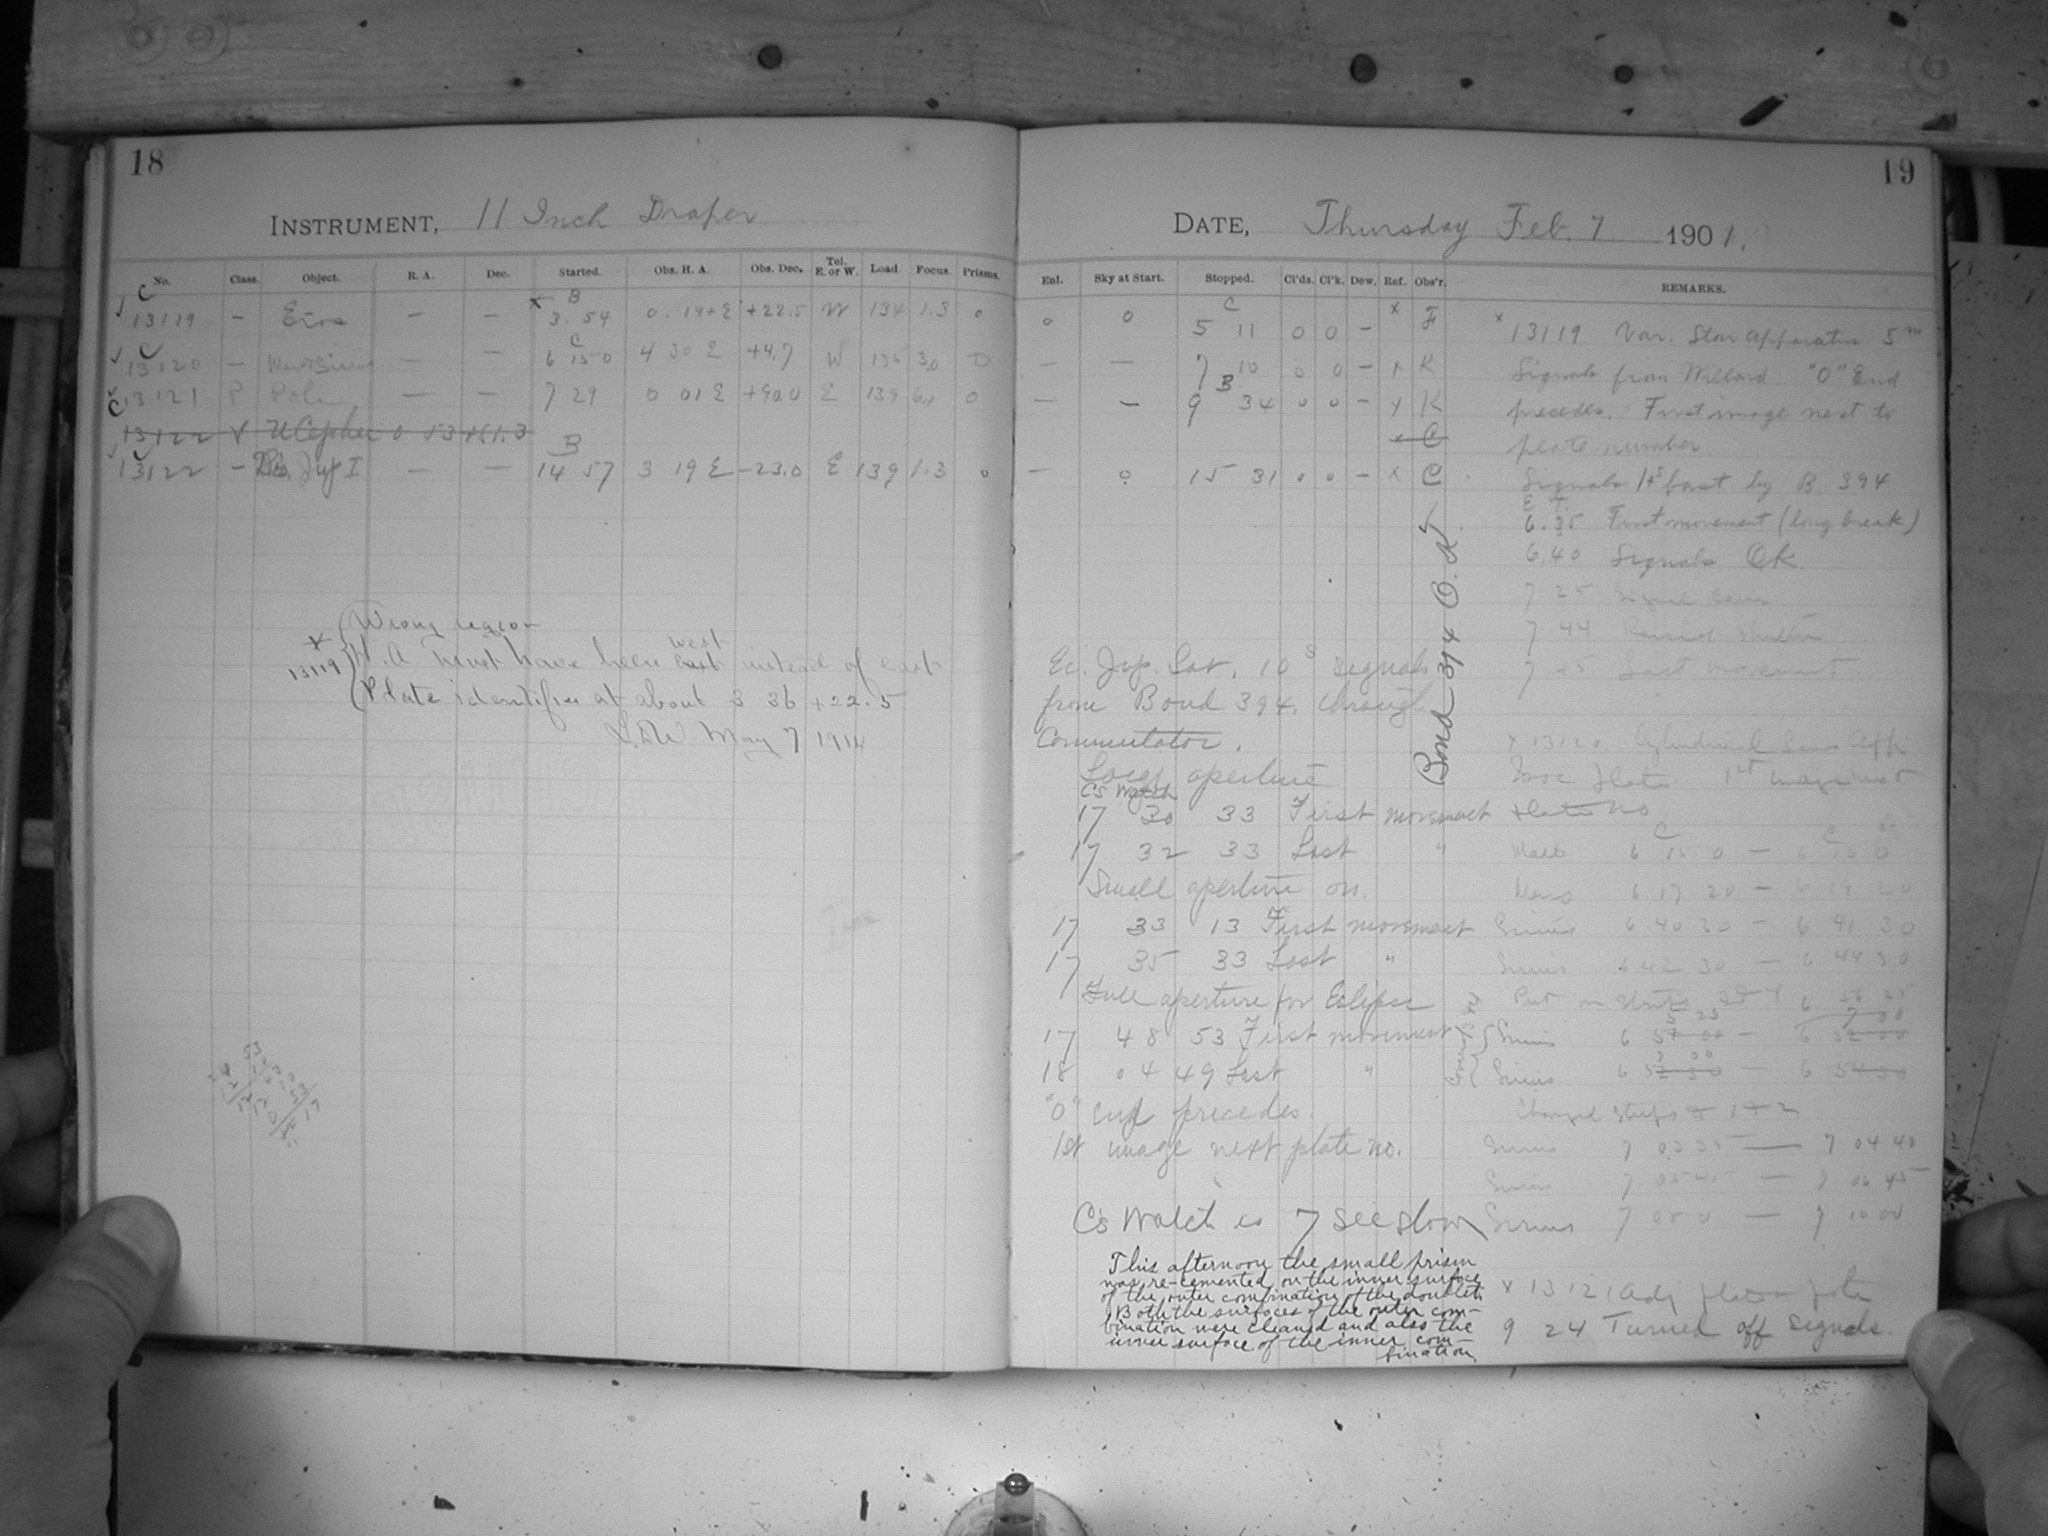 18
INSTRUMENT, 11 Inch Draper
No. Class. Object. R. A. Dec. Started. Obs. H. A. Obs. Dec. Tel. E. or W. Load. Focus. Prisms.
C B
13119 — Eros — — * 3. 54 0. 19+ E +22.5 W 134 1.3 0
C
13120 — — — 6 15 0 4 30 E +4.7 W 135 3.0
13121 P Pole — — 7 29 0 01 E +90.0 E 139 0
13122 V U Cephei 0 53 +81.3
B
13122 — Jup I — — 14 57 3 19 E -23.0 E 139 1.3 0
Wrong region
* 13119 H. A. must have been east west instead of east
Plate identifies at about 3 36 +22.5
L.D.W. May 7 1914
19
DATE, Thursday Feb. 7 1901.
Enl. Sky at Start. Stopped. Cl'ds. Cl'k. Dew. Ref. Obs'r. REMARKS.
C
0 0 5 11 0 0 — x F
— — 7 10 0 0 — x K
B
— — 9 34 0 0 — x K
x C
— 0 15 31 0 0 — x C
Bond 394 O.K.
Ec. Jup. Sat. 10 s signals
from Bond 394, through
Commutator.
Large aperture
C's Watch
17 30 33 First movement
17 32 33 Last "
Small aperture on.
17 33 13 First movement
17 35 33 Last "
Full aperture for Eclipse
17 48 53 First movement
18 04 49 Last "
"0" end precedes.
1st image next plate no.
C's Watch is 7 sec slow
This afternoon the small prism
was re-cemented on the inner surface
of the outer combination of the doublet.
Both the surfaces of the outer com-
bination were cleaned and also the
inner surface of the inner com-
bination.
x 13119 Var. Star apparatus 5 m
Signals from Willard. "0" End
precedes. First image next to
plate number.
Signals 1+s fast by B. 394
E T.
6.35 First movement (long break)
6.40 Signals OK.
7 25 Signal
7 44 Raised shutter
7 45 Last movement
x 13120. Cylindrical Lens
plate. 1st image next
plate no
C C
6 15 0 — 6 16 0
6 17 20 — 6 19 20
Sirius 6 40 30 — 6 41 30
Sirius 6 42 30 — 6 44 30
Put on
Sirius
Sirius
Changed strips 1 + 2
Sirius 7 03 35 — 7 04 40
Sirius 7 05 45 — 7 06 45
Sirius 7 08 0 — 7 10 00
x 13121 Adj plate pole
9 24 Turned off Signals.